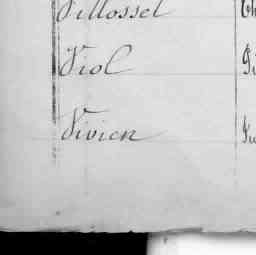 Villossel
Viol
Vivien